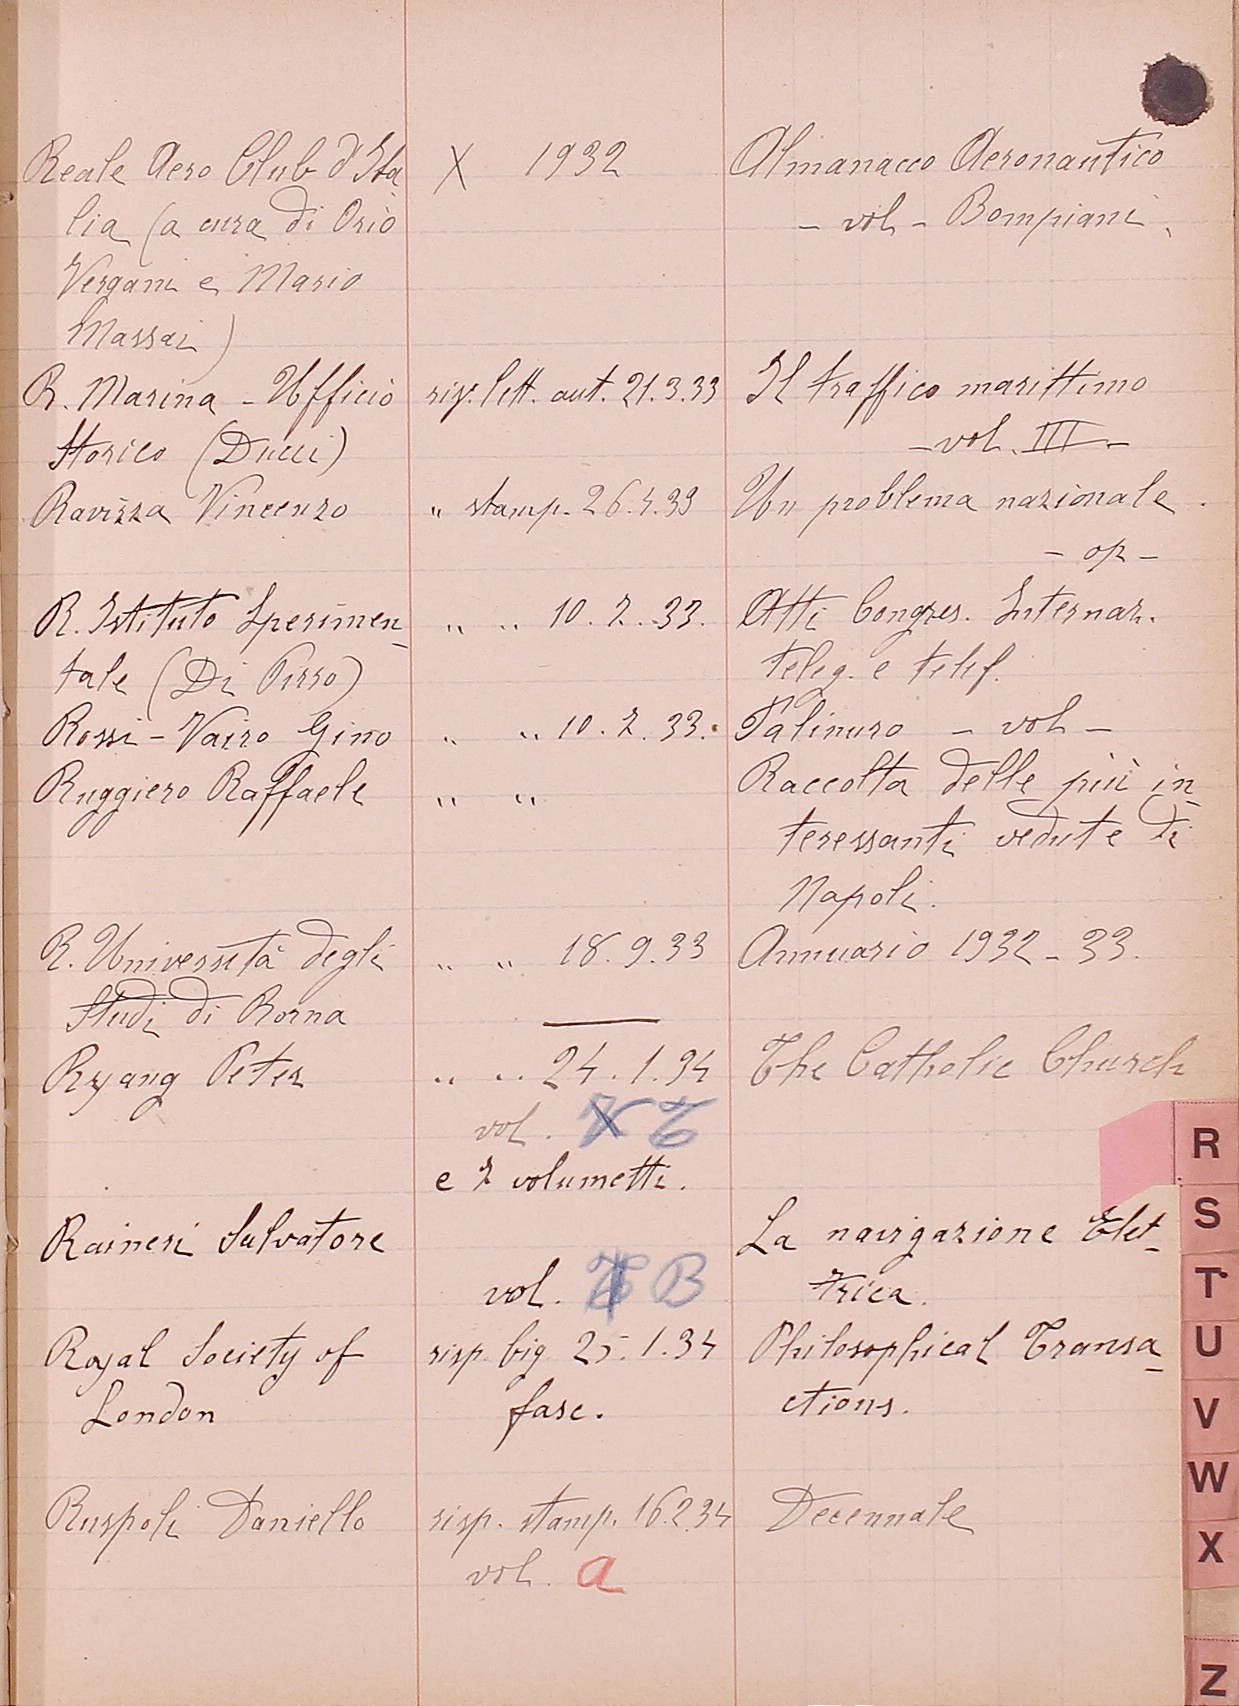 Reale Aero Club d'Ita X 1932 Almanacco Aeronautico
lia (a cura di Orio - vol - Bompiani.
Vergani e Mario
Massai)
R. Marina - Ufficio risp. lett. aut. 21.3.33 Il traffico marittimo
Storico (Ducci) - vol. III -
Ravizza Vincenzo " stamp. 26.4.33 Un problema nazionale.
- op -
R. Istituto Sperimen- " " 10.7.33. Atti Congres. Internaz.
tale (Di Pirro) teleg. e telef.
Rossi - Vairo Gino " " 10.7.33. Palinuro - vol -
Ruggiero Raffaele " " Raccolta delle più in-
teressanti vedute di
Napoli.
R. Università degli " " 18.9.33 Annuario 1932 - 33.
Studi di Roma
Ryang Peter " " 24.1.34 The Catholic Church
vol.
e 2 volumetti.
Raineri Salvatore La navigazione Elet-
vol. B trica.
Royal Society of risp. big 25.1.34 Philosophical Transa-
London fasc. ctions.
Ruspoli Daniello risp. stamp. 16.2.34 Decennale
vol. a
R
S
T
U
V
W
X
Z